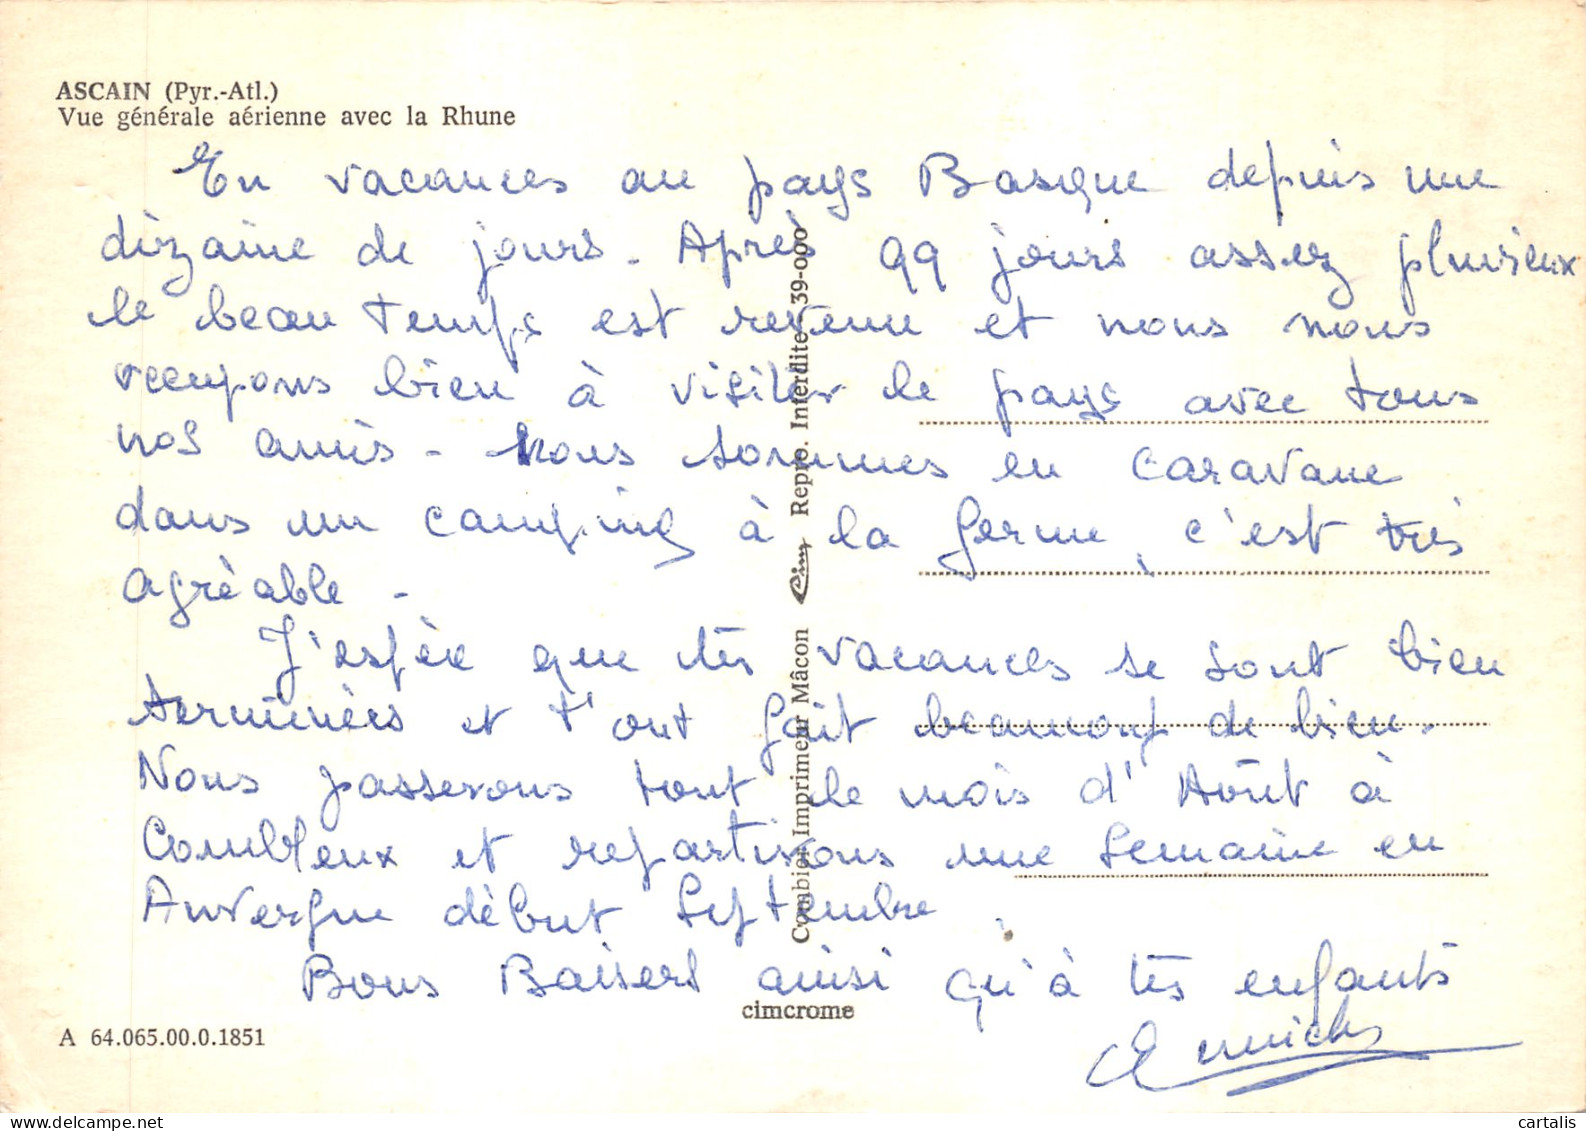 ASCAIN (Pyr.-Atl.)
Vue générale aérienne avec la Rhune
En vacances au pays Basque depuis une
dizaine de jours. Après qq jours assez pluvieux
le beau temps est revenu et nous nous
occupons bien à visiter le pays avec tous
nos amis - Nous sommes en caravane
dans un camping à la ferme, c'est très
agréable -
J'espère que tes vacances se sont bien
terminées et t'ont fait beaucoup de bien.
Nous passerons tout le mois d'Août à
Combleux et repartirons une semaine en
Auvergne début Septembre.
Bons Baisers ainsi qu'à tes enfants
Combier Imprimeur Mâcon Cim Repro. Interdite - 39-000
cimcrome
A 64.065.00.0.1851
cartalis